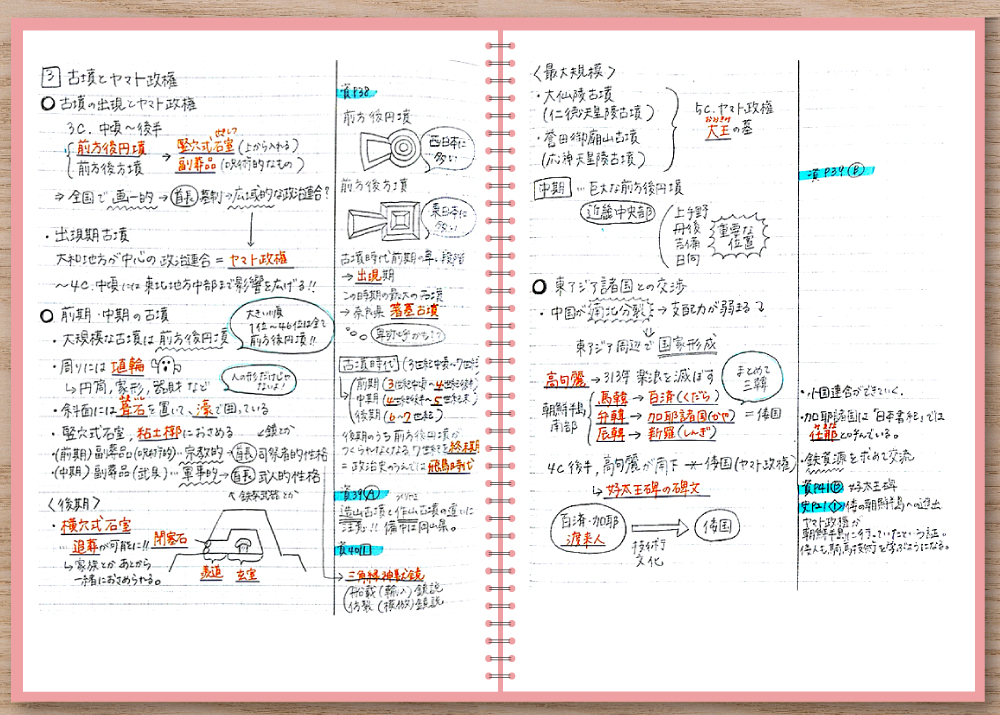 3 古墳とヤマト政権
○ 古墳の出現とヤマト政権
3C. 中頃〜後半
前方後円墳
前方後方墳
竪穴式石室 (上から入れる)
せきしつ
副葬品 (呪術的なもの)
⇒ 全国で画一的→首長墓制→広域的な政治連合?
・出現期古墳
大和地方が中心の政治連合 = ヤマト政権
〜4C.中頃には東北地方中部まで影響を広げる!!
○ 前期・中期の古墳
・大規模な古墳は前方後円墳
大きい順
1位〜46位は全て
前方後円墳!!
・周りには埴輪
↳円筒、家形、器財など
人の形だけじゃ
ないよ!
・斜面には葺石を置いて、濠で囲っている
・竪穴式石室、粘土槨におさめる
↙鏡とか
・(前期)副葬品(呪術的)…宗教的→首長 司祭者的性格
・(中期)副葬品(武具)…軍事的→首長 武人的性格
↖鉄製武器とか
〈後期〉
・横穴式石室
追葬が可能に!!
閉塞石
↳家族とかあとから
一緒におさめられる。
羨道
玄室
資P38
前方後円墳
西日本に
多い
前方後方墳
東日本に
多い
古墳時代前期の早い段階
→出現期
この時期の最大の古墳
→奈良県 箸墓古墳
卑弥呼かも!?
古墳時代 (3世紀中頃〜7世紀)
前期 (3世紀中頃〜4世紀後半)
中期 (4世紀後半〜5世紀末)
後期 (6〜7世紀)
後期のうち前方後円墳が
つくられなくなる7世紀を終末期
= 政治史のうえでは飛鳥時代
資39A
造山古墳と作山古墳の違いに
注意!! 備中は岡山県。
資40
三角縁神獣鏡
舶載(輸入)鏡説
仿製(模倣)鏡説
〈最大規模〉
・大仙陵古墳
(仁徳天皇陵古墳)
・誉田御廟山古墳
(応神天皇陵古墳)
5C.ヤマト政権
おおきみ
大王の墓
中期 … 巨大な前方後円墳
近畿中央部
上毛野
丹後
吉備
日向
重要な
位置
資P39B
○ 東アジア諸国との交渉
・中国が南北分裂→支配力が弱まる
東アジア周辺で国家形成
高句麗→313年 楽浪を滅ぼす
まとめて
三韓
朝鮮半島
南部
馬韓→百済(くだら)
弁韓→加耶諸国(かや) = 倭国
辰韓→新羅(しんぎ)
4C後半,高句麗が南下 ↔ 倭国(ヤマト政権)
↳好太王碑の碑文
百済・加耶
渡来人
技術
文化
倭国
・小国連合ができていく。
・加耶諸国は「日本書紀」では
任那と呼んでいる。
・鉄資源を求めて交流
資P41B 好太王碑
史P21① 倭の朝鮮半島への進出
ヤマト政権が
朝鮮半島に行っていたという証。
倭人も騎馬技術を学ぶようになる。